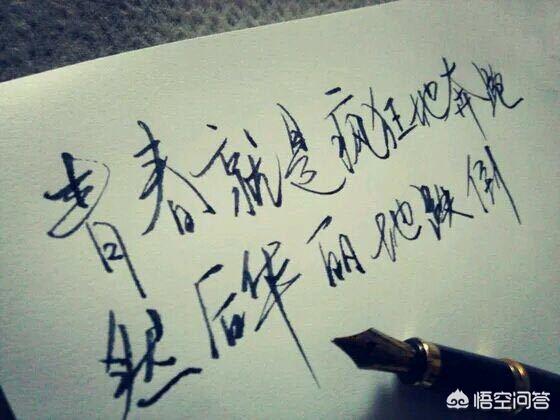 青春就是疯狂地奔跑
然后华丽地跌倒
悟空问答